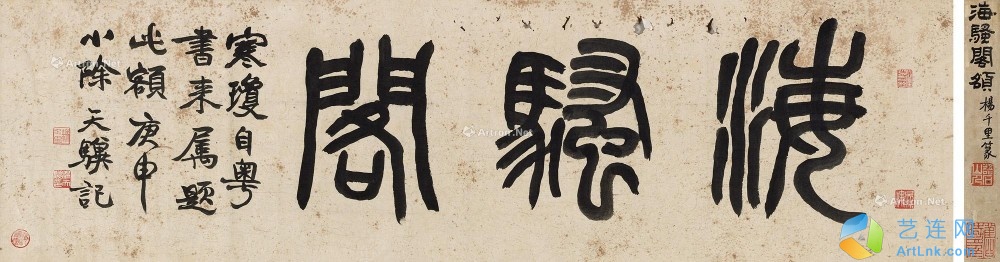 海騷閣
寒瓊自粵
書来屬題
此額庚申
小除天驥記
海騷閣額
楊千里篆
Artron.Net
Artron.Net
Artron.Net
Artron.Net
艺连网
ArtLnk.com